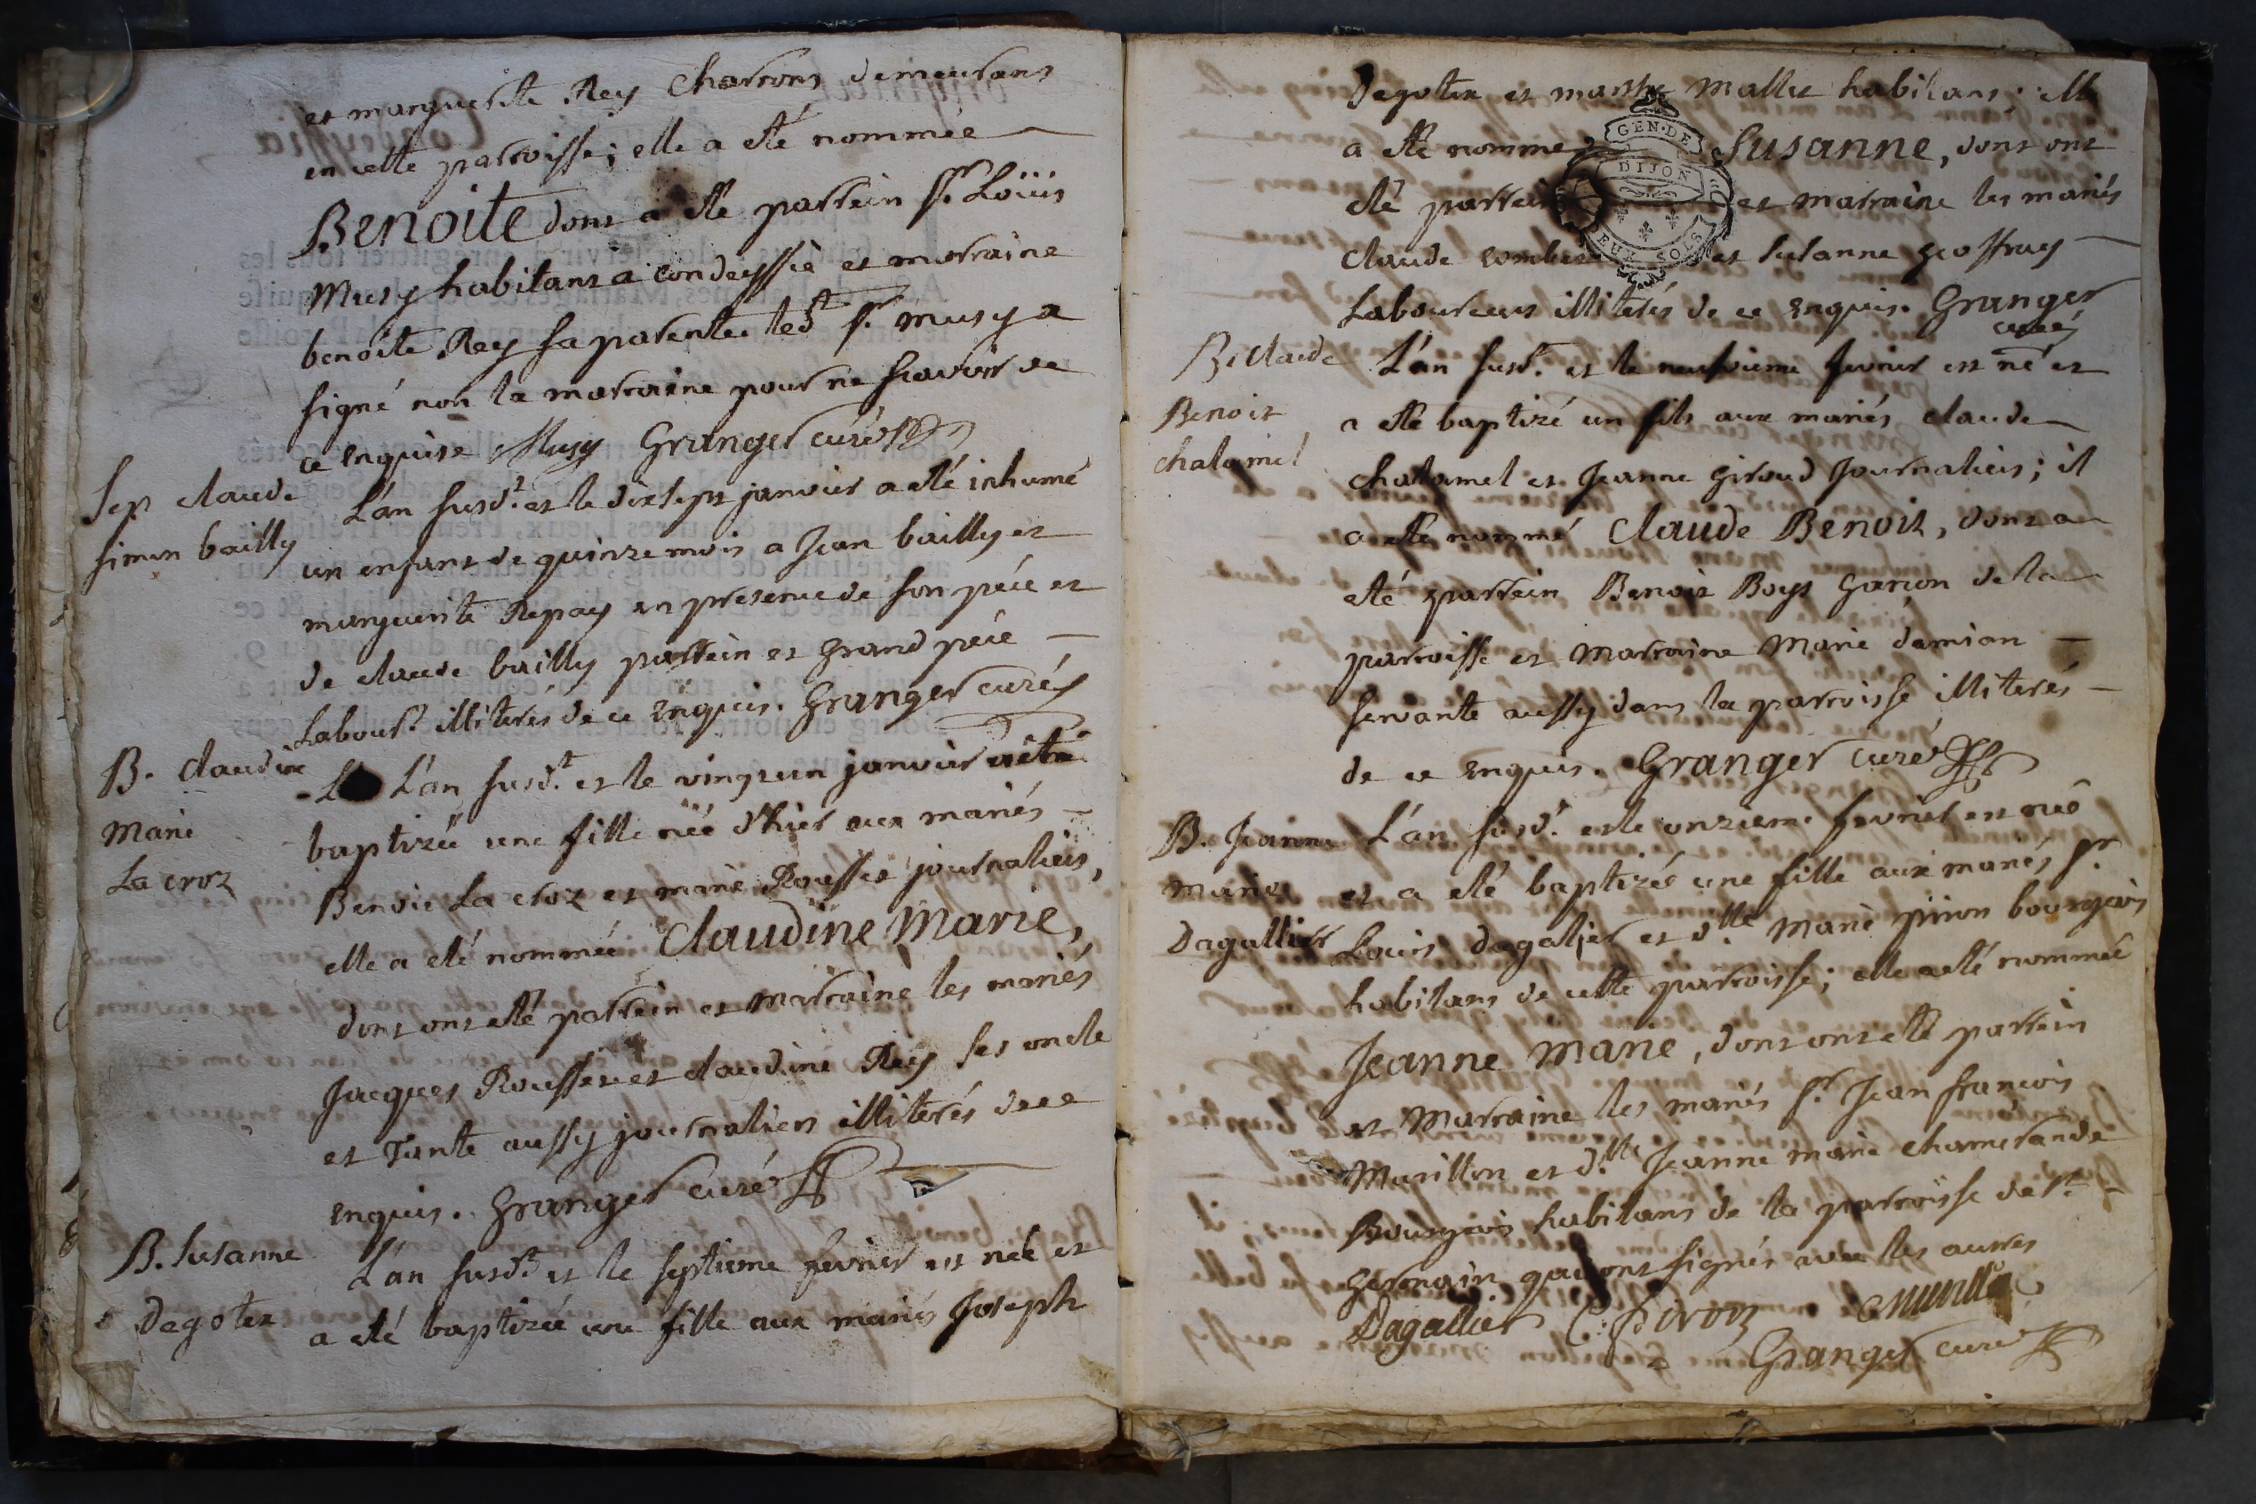 et marguerite Rey Charrons demeurans
en cette parroisse; elle a eté nommée
BENOITE dont a eté parrein Sr. Loüis
Musy habitant a condeyssia et marraine
benoite Rey sa parente ledt Sr. musy a
signé non la marraine pour ne scavoir de
ce enquise Musy Granger curé
Sep claude
simon bailly
L'an susdt. et le dixsept janvier a eté inhumé
un enfant de quinze mois a Jean bailly et
marguerite Repay en presence de son pére et
de claude bailly parrein et grand pére
Labourr. illiterés de ce enquis. Granger curé
B. claudine
Marie
La croz
L'an susdt. et le vingt un janvier a eté
baptizée une fille née d'hier aux mariés
Benoit La croz et marie Rousset journaliers,
elle a eté nommée Claudine Marie,
dont ont eté parrein et marraine les mariés
Jacques Rousset et claudine Rey ses oncle
et Tante aussy journaliers illiterés de ce
enquis. Granger curé
B. Susanne
Degotex
L'an susdt. et le septieme fevrier est neé et
a eté baptizée une fille aux mariés Joseph
Degotex et marthe Mallet habitans; elle
a eté nommeé Susanne, dont ont
eté parrein et marraine les mariés
GEN. DE
DIJON
DEUX SOLS
claude combet et Susanne geoffray
Laboureurs illiterés de ce enquis. Granger
curé
B. Claude
Benoit
chalamel
L'an susdt. et le neufvieme fevrier est né et
a eté baptizé un fils aux mariés claude
chalamel et Jeanne Giroud Journaliers; il
a eté nommé Claude Benoit, dont a
eté parrein Benoit Boys Garcon de la
parroisse et Marraine Marie damian
servante aussy dans la parroisse illiterés
de ce enquis. Granger curé
B. Jeanne
Marie
Dagallier
L'an susdt. et le onzieme fevrier est neé
et a eté baptizée une fille aux mariés Sr.
Louis Dagallier et dlle. Marie piron bourgeois
habitans de cette parroisse; elle a eté nommée
Jeanne Marie, dont ont eté parrein
et Marraine les mariés Sr. Jean francois
Marillon et dlle. Jeanne marie chamerande
Bourgeois habitans de la parroisse de St.
germain qui ont signés avec les autres
Dagallier Piron
Granger curé